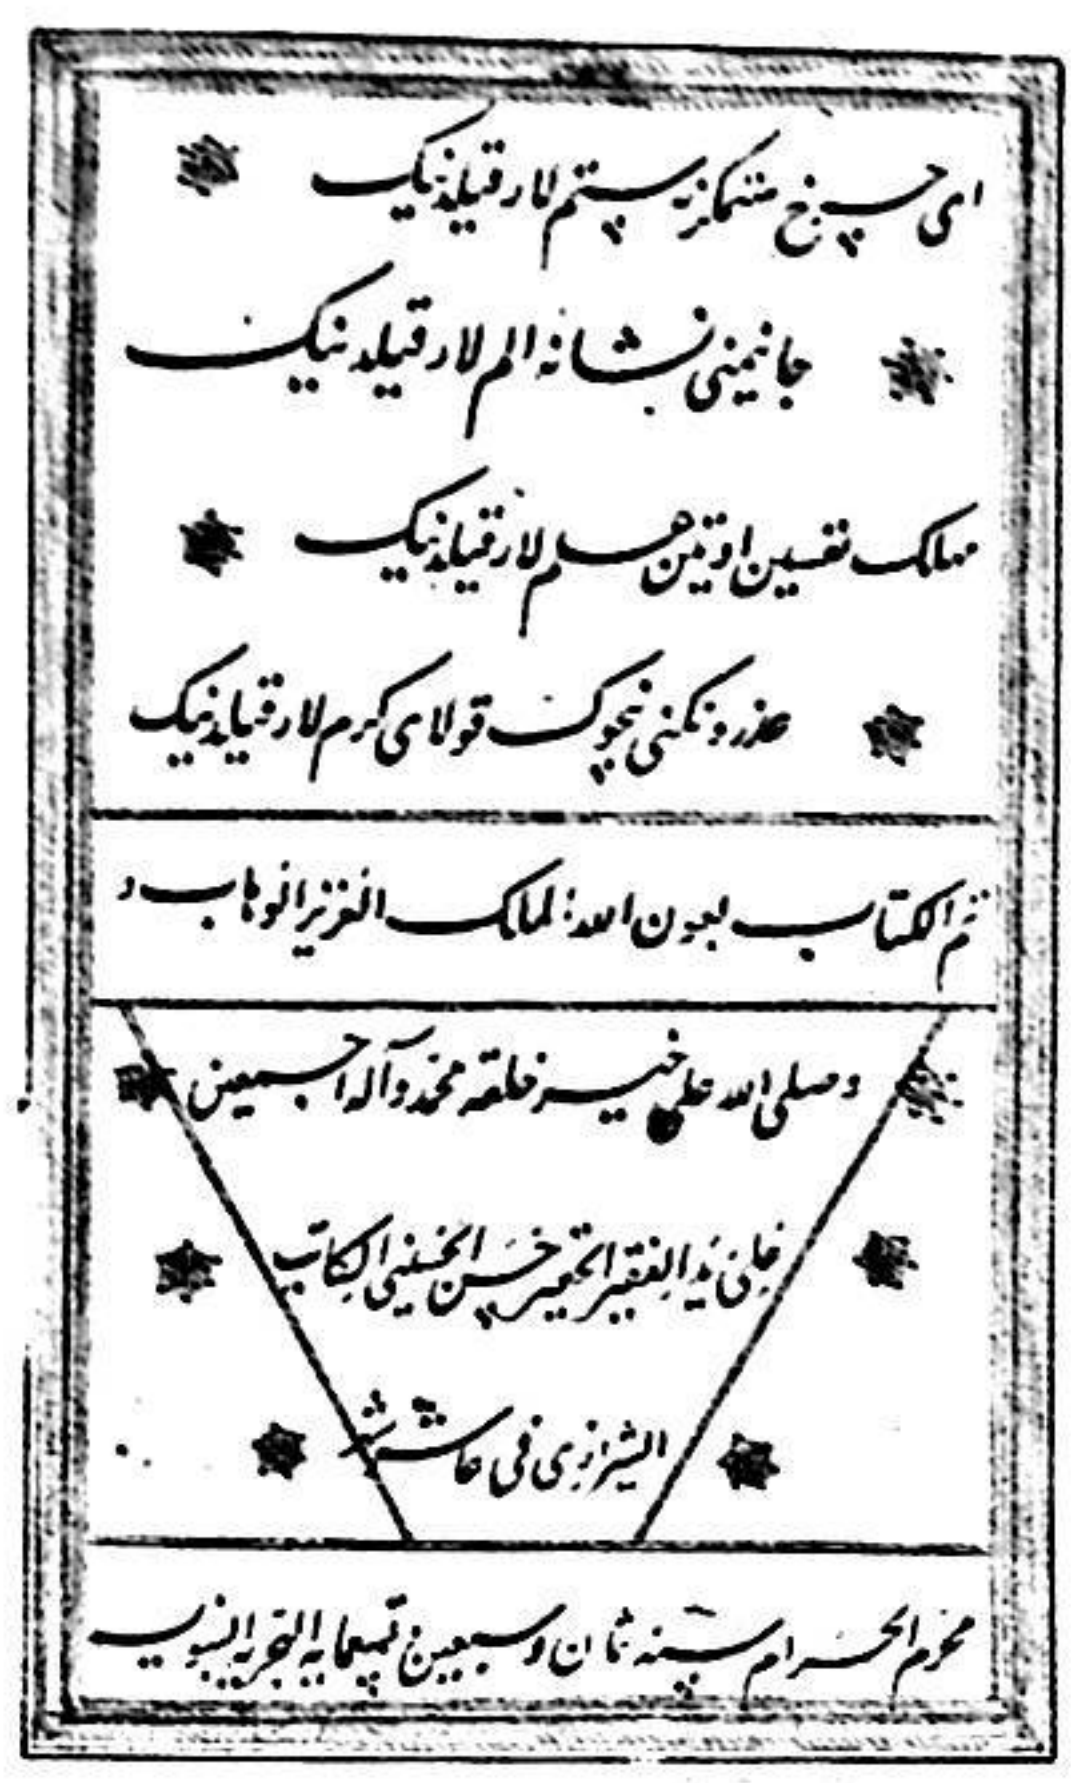 ای چرخ ستمکر نه ستم لار قیلدینک
جانیمنی نشانه الم لار قیلدینک
مهلک نفسین اوتین هم لار قیلدینک
عذرونکنی نچوک قولای کرم لار قیلدینک
تم الکتاب بعون الله الملک العزیز الوهاب و
و صلی الله علی خیر خلقه محمد و آله اجمعین
الفقیر الحقیر حسن الحسینی الکاتب
الشیرازی فی عاشر شهر
محرم الحرام سنه ثمان و سبعین تسعمایه الهجریه النبویه